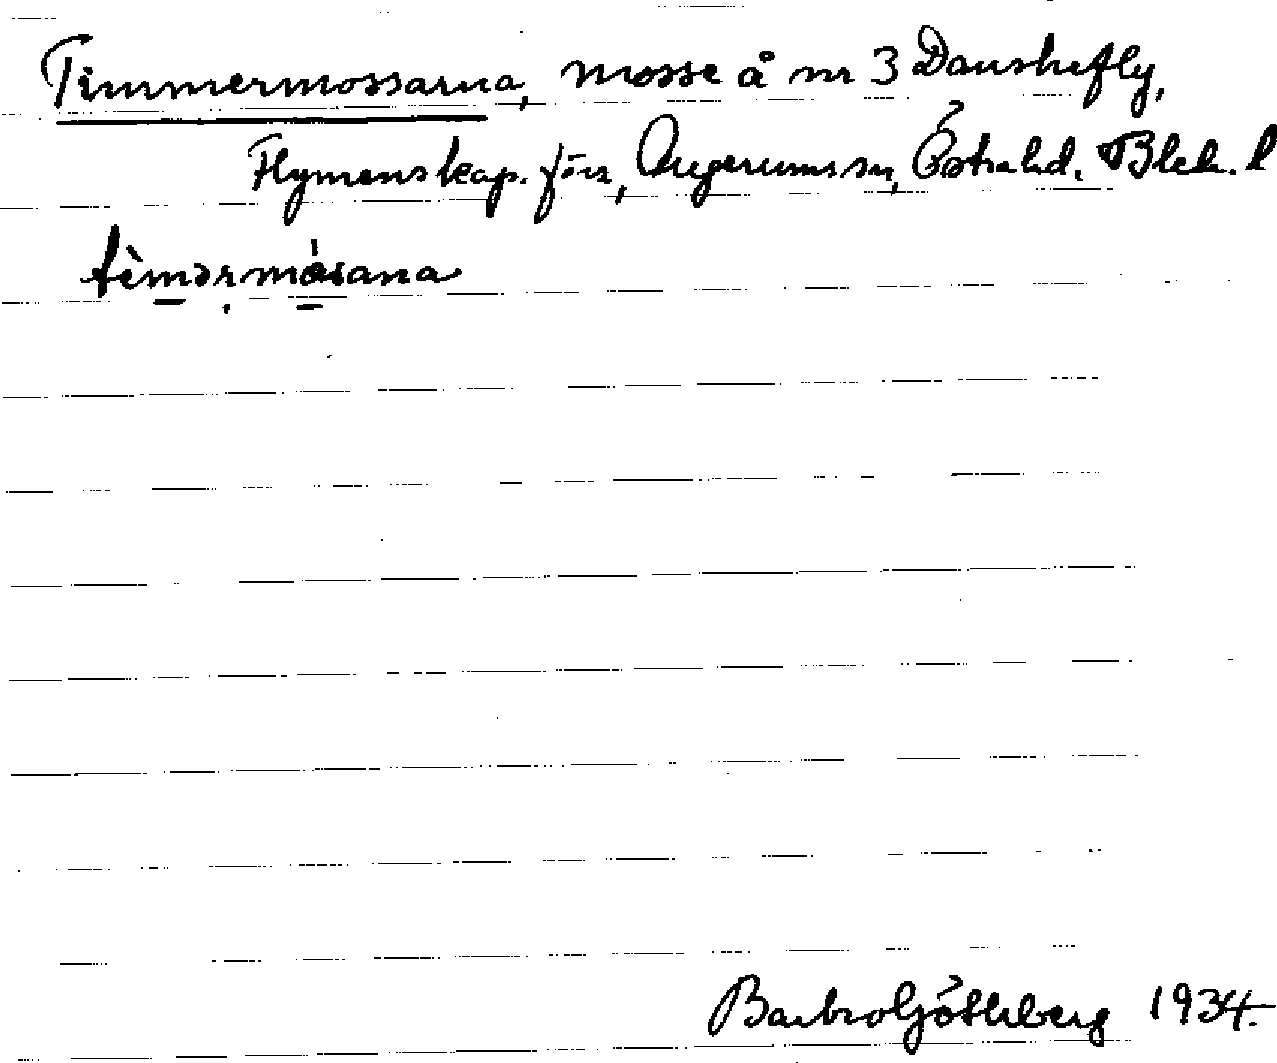 Timmermossarna, mosse å nr 3 Dauskefly,
Flymens kap. förs, Augerums sn, Östra hd. Blek. l
tèmərmòsana
Barbro Götherberg 1934.